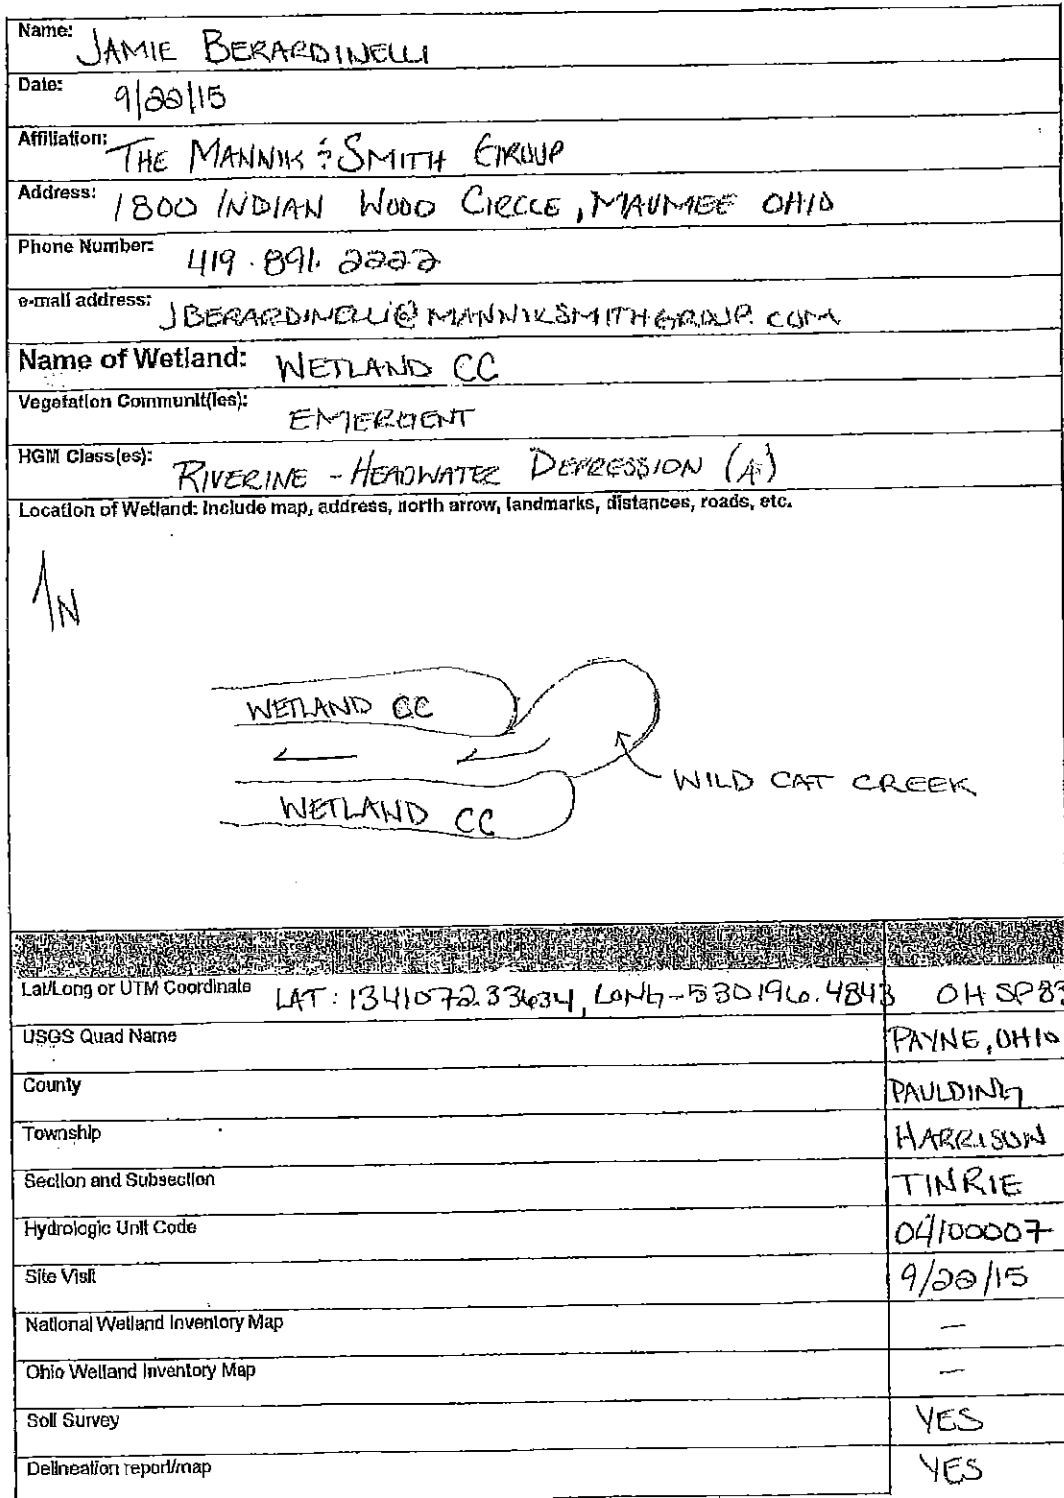 Name: JAMIE BERARDINELLI
Date: 9/22/15
Affiliation: THE MANNIK & SMITH GROUP
Address: 1800 INDIAN WOOD CIRCLE, MAUMEE OHIO
Phone Number: 419.891.2222
e-mail address: JBERARDINELLI@MANNIKSMITHGROUP.COM
Name of Wetland: WETLAND CC
Vegetation Communit(ies): EMERGENT
HGM Class(es): RIVERINE - HEADWATER DEPRESSION (A)
Location of Wetland: Include map, address, north arrow, landmarks, distances, roads, etc.
N
WETLAND CC
WILD CAT CREEK
WETLAND CC
Lat/Long or UTM Coordinate LAT: 1341072.33634, LONG-530196.4843 OH SP83
USGS Quad Name PAYNE, OHIO
County PAULDING
Township HARRISON
Section and Subsection T1NR1E
Hydrologic Unit Code 04100007
Site Visit 9/22/15
National Wetland Inventory Map —
Ohio Wetland Inventory Map —
Soil Survey YES
Delineation report/map YES